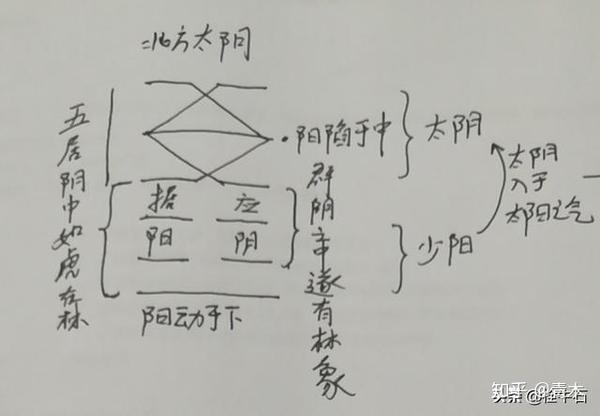 北方太阳
五居阴中如虎在林
·阳陷于中
太阴
据 应
阳 阴
群阴
遂有林象
少阳
太阴
入于
太阳之气
阳动于下
知乎 @青木
头条